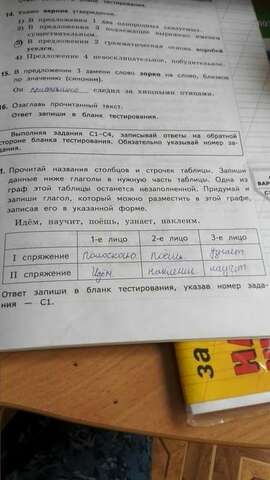 14. Укажи верное утверждение.
1) В предложении 1 два однородных сказуемых.
2) В предложении 3 подлежащее выражено именем
существительным.
3) В предложении 2 грамматическая основа воробей
уселся.
4) Предложение 4 невосклицательное, побудительное.
15. В предложении 3 замени слово зорко на слово, близкое
по значению (синоним).
Он следил за хищными птицами.
16. Озаглавь прочитанный текст.
Ответ запиши в бланк тестирования.
Выполняя задания С1–С4, записывай ответы на обратной
стороне бланка тестирования. Обязательно указывай номер за-
дания.
1. Прочитай названия столбцов и строчек таблицы. Запиши
данные ниже глаголы в нужную часть таблицы. Одна из
граф этой таблицы останется незаполненной. Придумай и
запиши глагол, который можно разместить в этой графе,
записав его в указанной форме.
Идём, научит, поёшь, узнает, наклеим.
1-е лицо 2-е лицо 3-е лицо
I спряжение поёшь узнает
II спряжение Идём наклеим научит
Ответ запиши в бланк тестирования, указав номер зада-
ния — С1.
ВАР
за